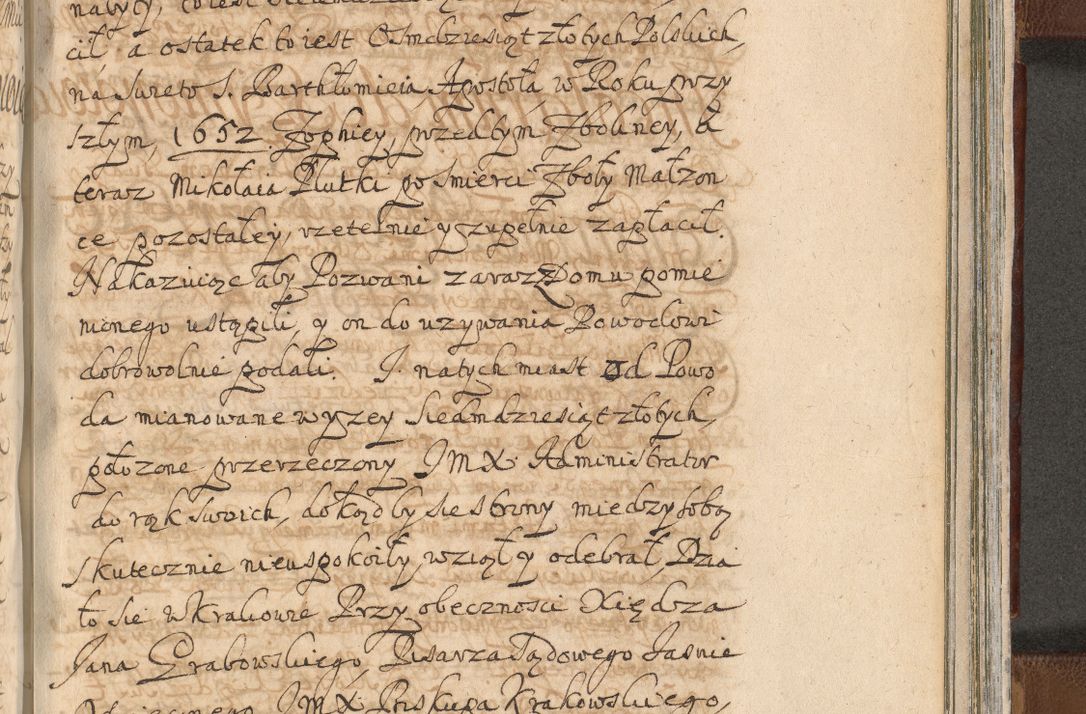 cił, a ostatek to iest Osmdziesiąt złotych Polskich,
na Swięto S. Barthłomieia Apostoła, w Roku przy
szłym, 1652. Zophiey, przedtym Zboliney, a
teraz Mikołaia Plutki po smierci Zboły Małzon
ce pozostałey, rzetelnie y zupełnie zapłacił.
Nakazuiąc aby Pozwani zaraz z Domu pomie
nionego ustąpili, y on do uzywania Powodowi
dobrowolnie podali. I. natychmiast od Powo
da mianowane wyzey siedmdziesiąt złotych,
położone przerzeczony JMX. Administrator
do rąk swoich, dokądby sie strony miedzy sobą
skutecznie nieuspokoiły, wziął y odebrał, Dzia
ło sie w Krakowie Przy obecznosci Xiędza
Jana Grabowskiego, Pisarza Sądowego Jasnie
JMX. Biskupa Krakowskiego,